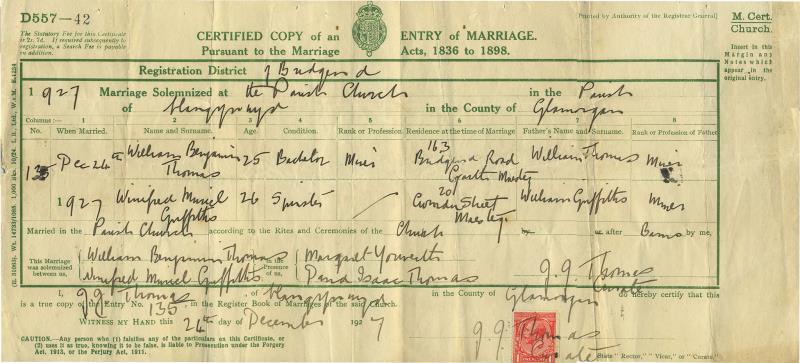 D557-42
The Statutory Fee for this Certificate is 2s. 7d. If required subsequently to registration, a Search Fee is payable in addition.
CERTIFIED COPY of an ENTRY of MARRIAGE.
Pursuant to the Marriage Acts, 1836 to 1898.
Printed by Authority of the Registrar General.
M. Cert. Church.
Insert in this Margin any Notes which appear in the original entry.
Registration District of Bridgend
1927 Marriage Solemnized at the Parish Church in the Parish
of Llangynwyd in the County of Glamorgan
Columns:— 1 2 3 4 5 6 7 8
No. When Married. Name and Surname. Age. Condition. Rank or Profession. Residence at the time of Marriage Father's Name and Surname. Rank or Profession of Father.
135 Dec 24th William Benjamin Thomas 25 Bachelor Miner 163 Bridgend Road Garth Maesteg William Thomas Miner
1927 Winifred Muriel Griffiths 26 Spinster 20 Street Maesteg William Griffiths Miner
Married in the Parish Church according to the Rites and Ceremonies of the Church by or after Banns by me,
This Marriage was solemnized between us,
William Benjamin Thomas
Winifred Muriel Griffiths
in the Presence of us,
Margaret Yorwerth
David Isaac Thomas
J. J. Thomas
Curate
I, J. J. Thomas of Llangynwyd in the County of Glamorgan do hereby certify that this
is a true copy of the Entry No. 135 in the Register Book of Marriages of the said Church.
WITNESS MY HAND this 24th day of December 1927
J. J. Thomas
Curate
State "Rector," "Vicar," or "Curate."
CAUTION.—Any person who (1) falsifies any of the particulars on this Certificate, or (2) uses it as true, knowing it to be false, is liable to Prosecution under the Forgery Act, 1913, or the Perjury Act, 1911.